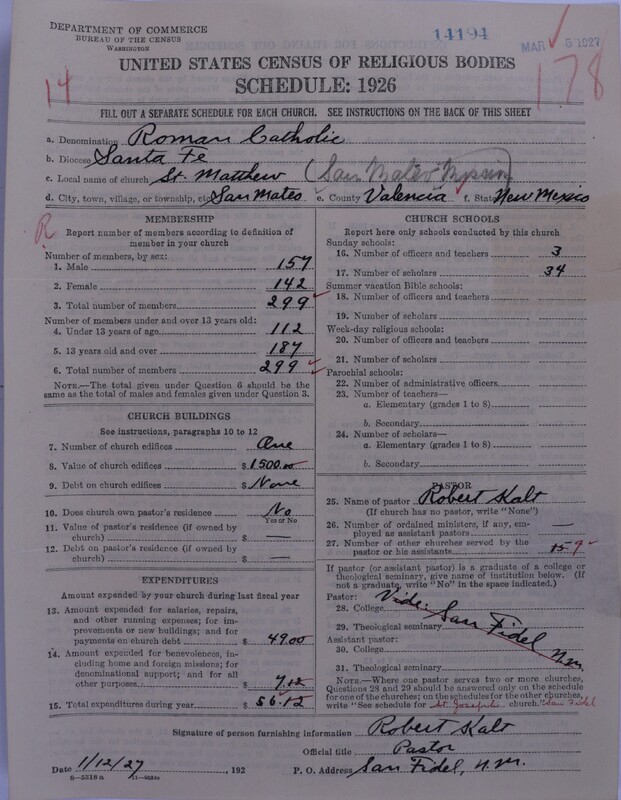 DEPARTMENT OF COMMERCE
BUREAU OF THE CENSUS
WASHINGTON
14194
MAR 5 1927
UNITED STATES CENSUS OF RELIGIOUS BODIES
SCHEDULE: 1926
14
178
FILL OUT A SEPARATE SCHEDULE FOR EACH CHURCH. SEE INSTRUCTIONS ON THE BACK OF THIS SHEET
a. Denomination Roman Catholic
b. Diocese Santa Fe
c. Local name of church St. Matthew (San Mateo Mission)
d. City, town, village, or township, etc San Mateo e. County Valencia f. State New Mexico
R
MEMBERSHIP
Report number of members according to definition of member in your church
Number of members, by sex:
1. Male 157
2. Female 142
3. Total number of members 299
Number of members under and over 13 years old:
4. Under 13 years of age 112
5. 13 years old and over 187
6. Total number of members 299
NOTE.—The total given under Question 6 should be the same as the total of males and females given under Question 3.
CHURCH BUILDINGS
See instructions, paragraphs 10 to 12
7. Number of church edifices One
8. Value of church edifices $ 1500.00
9. Debt on church edifices $ None
10. Does church own pastor's residence? No
Yes or No
11. Value of pastor's residence (if owned by
church) $ —
12. Debt on pastor's residence (if owned by
church) $ —
EXPENDITURES
Amount expended by your church during last fiscal year
13. Amount expended for salaries, repairs,
and other running expenses; for im-
provements or new buildings; and for
payments on church debt $ 49.00
14. Amount expended for benevolences, in-
cluding home and foreign missions; for
denominational support; and for all
other purposes $ 7.12
15. Total expenditures during year $ 56.12
CHURCH SCHOOLS
Report here only schools conducted by this church
Sunday schools:
16. Number of officers and teachers 3
17. Number of scholars 34
Summer vacation Bible schools:
18. Number of officers and teachers
19. Number of scholars
Week-day religious schools:
20. Number of officers and teachers
21. Number of scholars
Parochial schools:
22. Number of administrative officers
23. Number of teachers—
a. Elementary (grades 1 to 8)
b. Secondary
24. Number of scholars—
a. Elementary (grades 1 to 8)
b. Secondary
PASTOR
25. Name of pastor Robert Kalt
(If church has no pastor, write "None")
26. Number of ordained ministers, if any, em-
ployed as assistant pastors —
27. Number of other churches served by the
pastor or his assistants 15 9
If pastor (or assistant pastor) is a graduate of a college or
theological seminary, give name of institution below. (If
not a graduate, write "No" in the space indicated.)
Pastor:
28. College Vide: San Fidel N.M.
29. Theological seminary
Assistant pastor:
30. College
31. Theological seminary
NOTE.—Where one pastor serves two or more churches,
Questions 28 and 29 should be answered only on the schedule
for one of the churches; on the schedules for the other churches,
write "See schedule for St. Joseph's church." San Fidel
Signature of person furnishing information Robert Kalt
Official title Pastor
Date 1/12/27, 192 P. O. Address San Fidel, N.M.